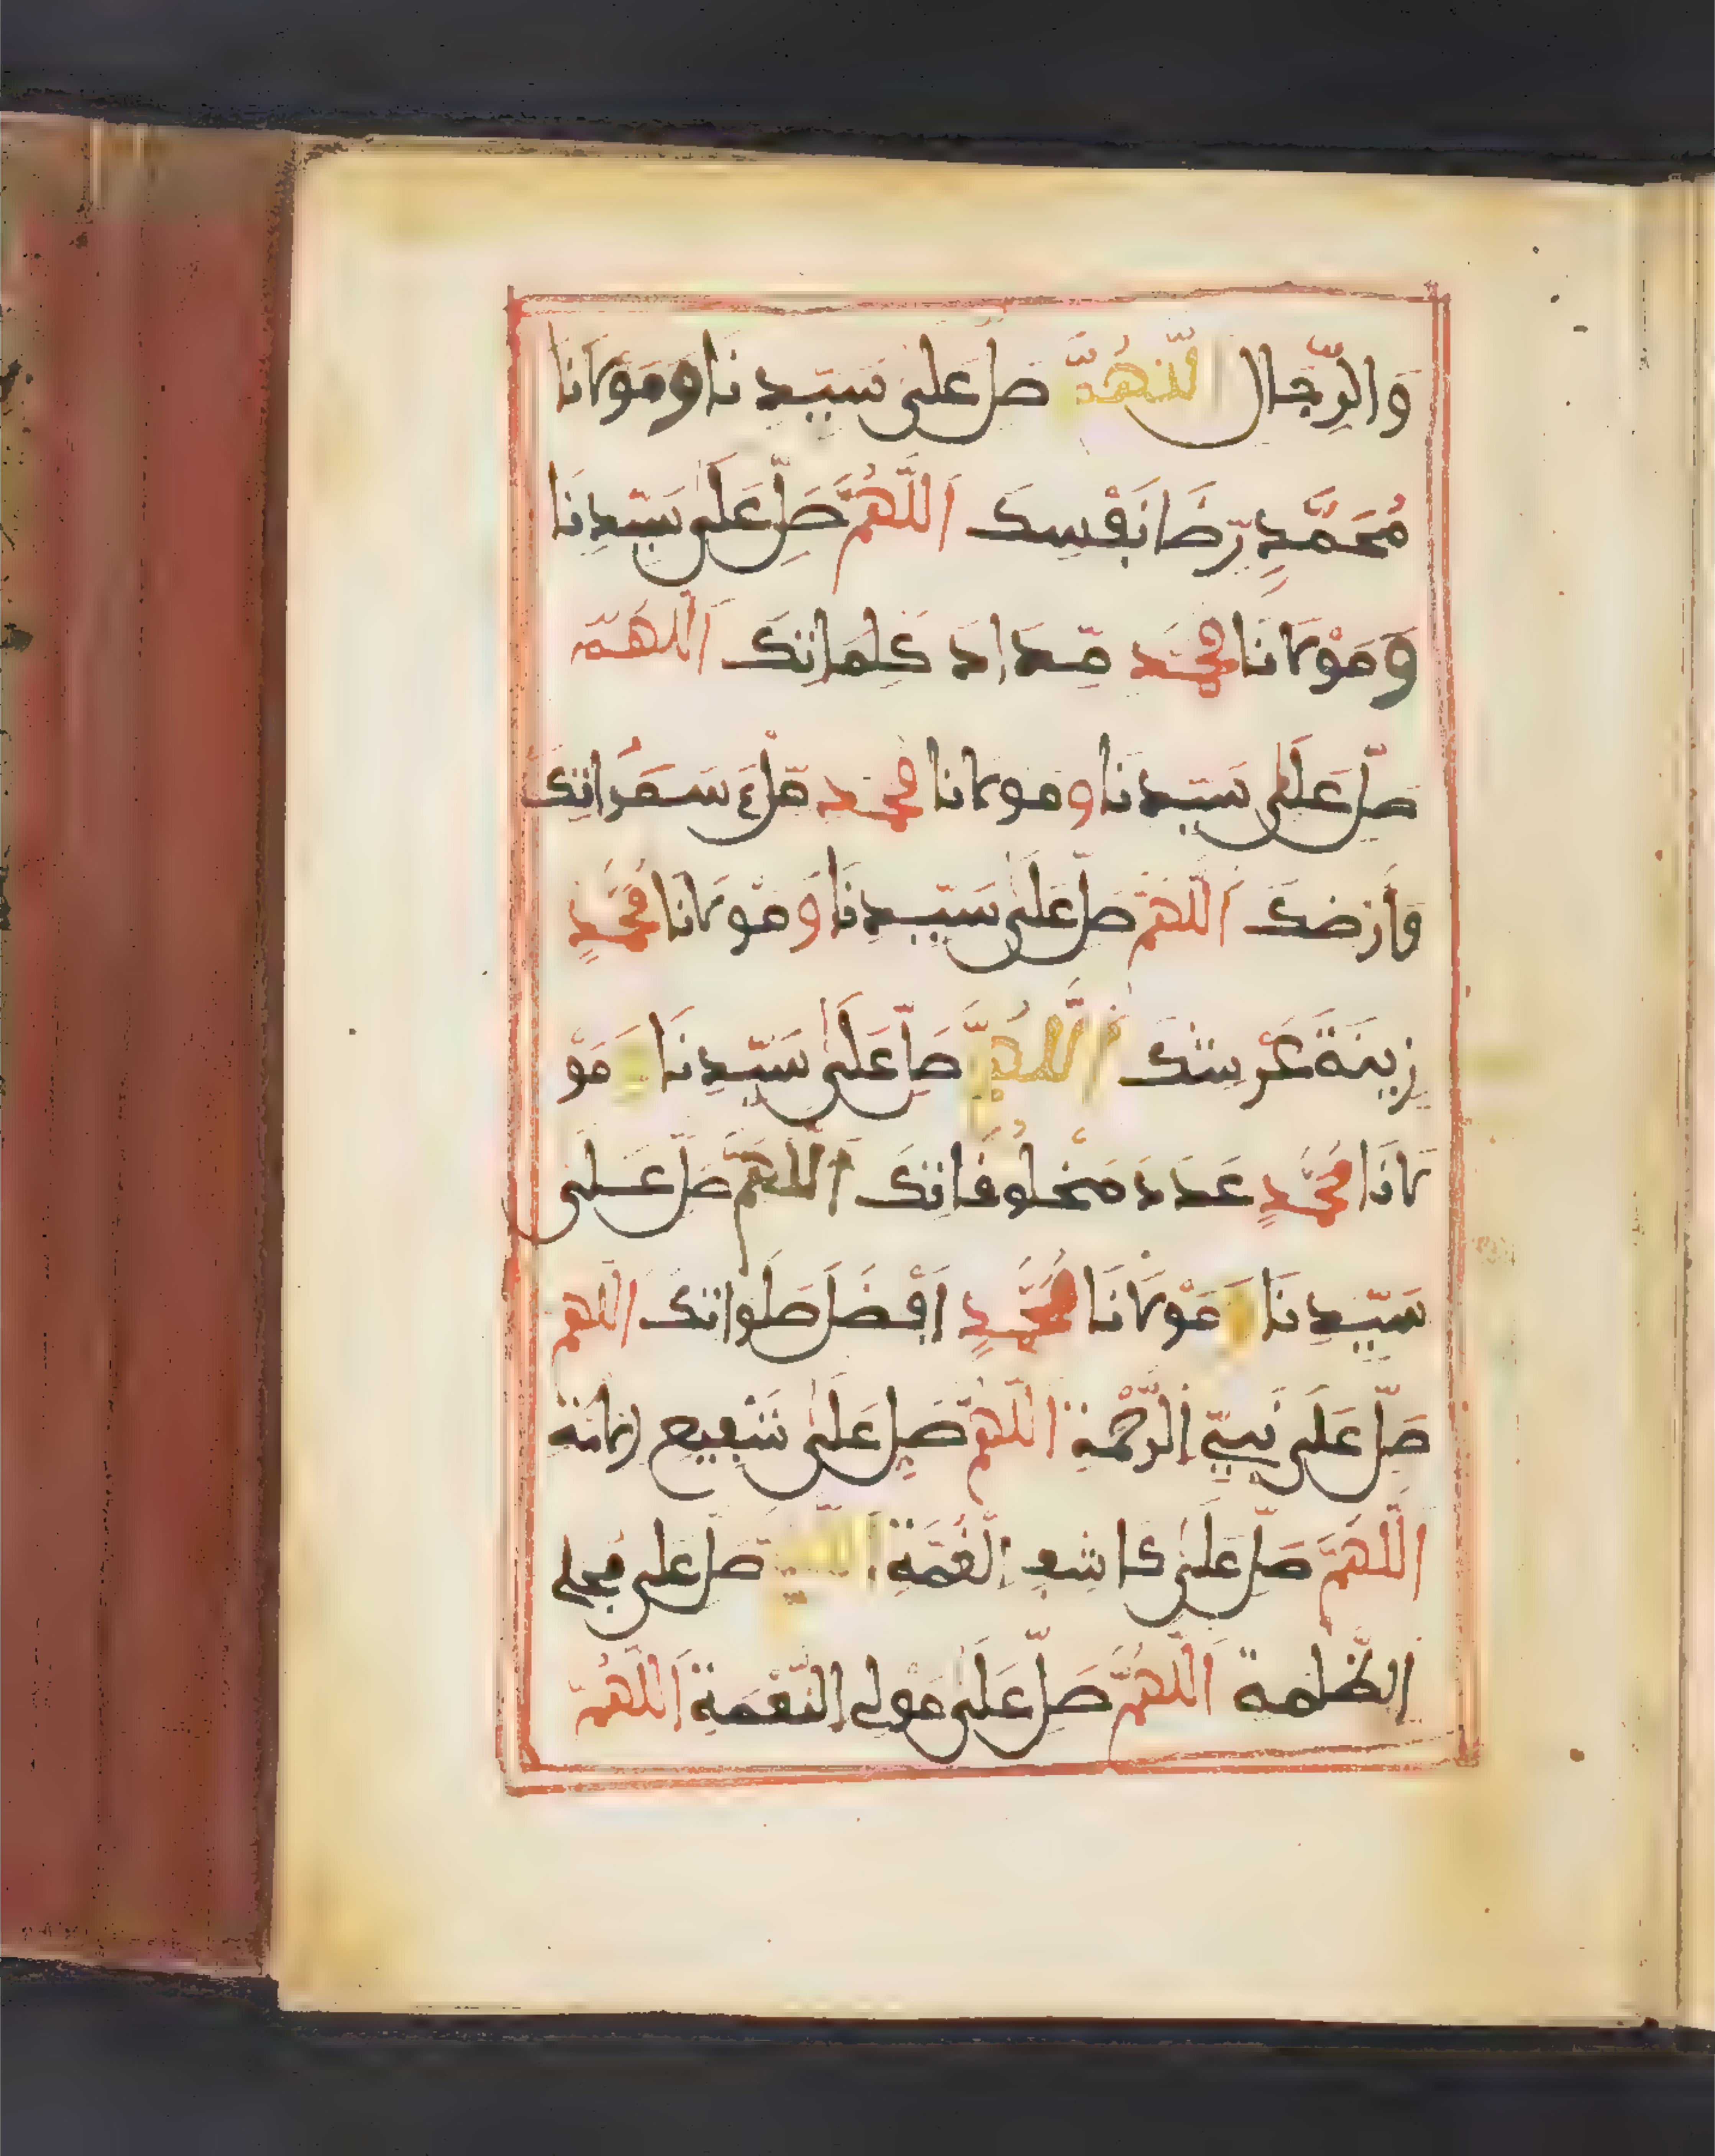 وَالرِّجَال اللَّهُمَّ صَلِّ عَلَى سَيِّدِنَا وَمَوْلَانَا
مُحَمَّدٍ رِّضَا نَفْسِكَ اَللَّهُمَّ صَلِّ عَلَى سَيِّدِنَا
وَمَوْلَانَا مُحَمَّد مِّدَادَ كَلِمَاتِكَ اَللَّهُمَّ
صَلِّ عَلَى سَيِّدِنَا وَمَوْلَانَا مُحَمَّد مِّلْءَ سَمَوَاتِكَ
وَأَرْضِكَ اَللَّهُمَّ صَلِّ عَلَى سَيِّدِنَا وَمَوْلَانَا مُحَمَّدٍ
زِينَةَ عَرْشِكَ اَللَّهُمَّ صَلِّ عَلَى سَيِّدِنَا وَمَوْ
لَانَا مُحَمَّدٍ عَدَدَ مَخْلُوقَاتِكَ اَللَّهُمَّ صَلِّ عَلَى
سَيِّدِنَا وَمَوْلَانَا مُحَمَّدٍ اَفْضَلَ صَلَوَاتِكَ اَللَّهُمَّ
صَلِّ عَلَى نَبِيِّ الرَّحْمَةِ اَللَّهُمَّ صَلِّ عَلَى شَفِيعِ الامَّة
اَللَّهُمَّ صَلِّ عَلَى كَاشِفِ الْغُمَّةِ اَللَّهُمَّ صَلِّ عَلَى مُجْلِي
الظُّلْمَة اَللَّهُمَّ صَلِّ عَلَى مَوْلِي النِّعْمَةِ اَللَّهُمَّ